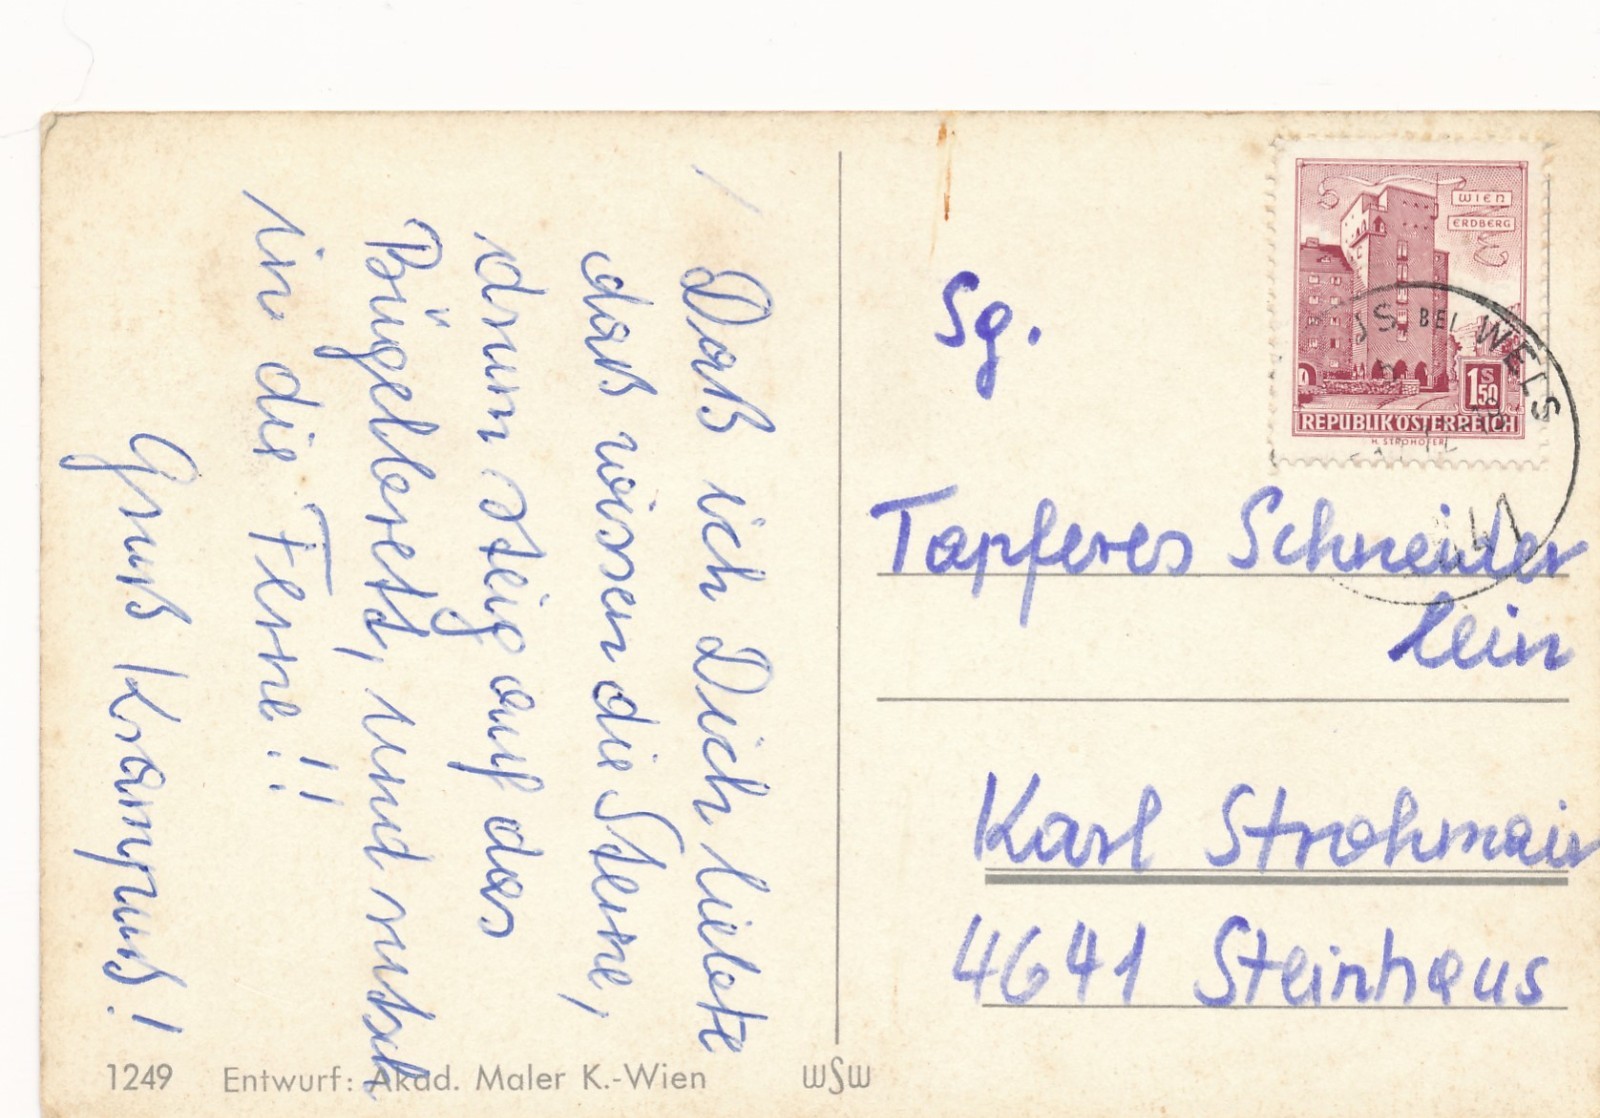 Daß ich Dich liebte
das wissen die Sterne,
drum steig auf das
Bügelbrett, und rutsch
in die Ferne!!
Gruß Krampuß!
1249 Entwurf: Akad. Maler K.-Wien
WSW
WIEN
ERDBERG
1 S 50
REPUBLIK ÖSTERREICH
H. STROHOFER
BEI WELS
Sg.
Tapferes Schneider
lein
Karl Strohmair
4641 Steinhaus